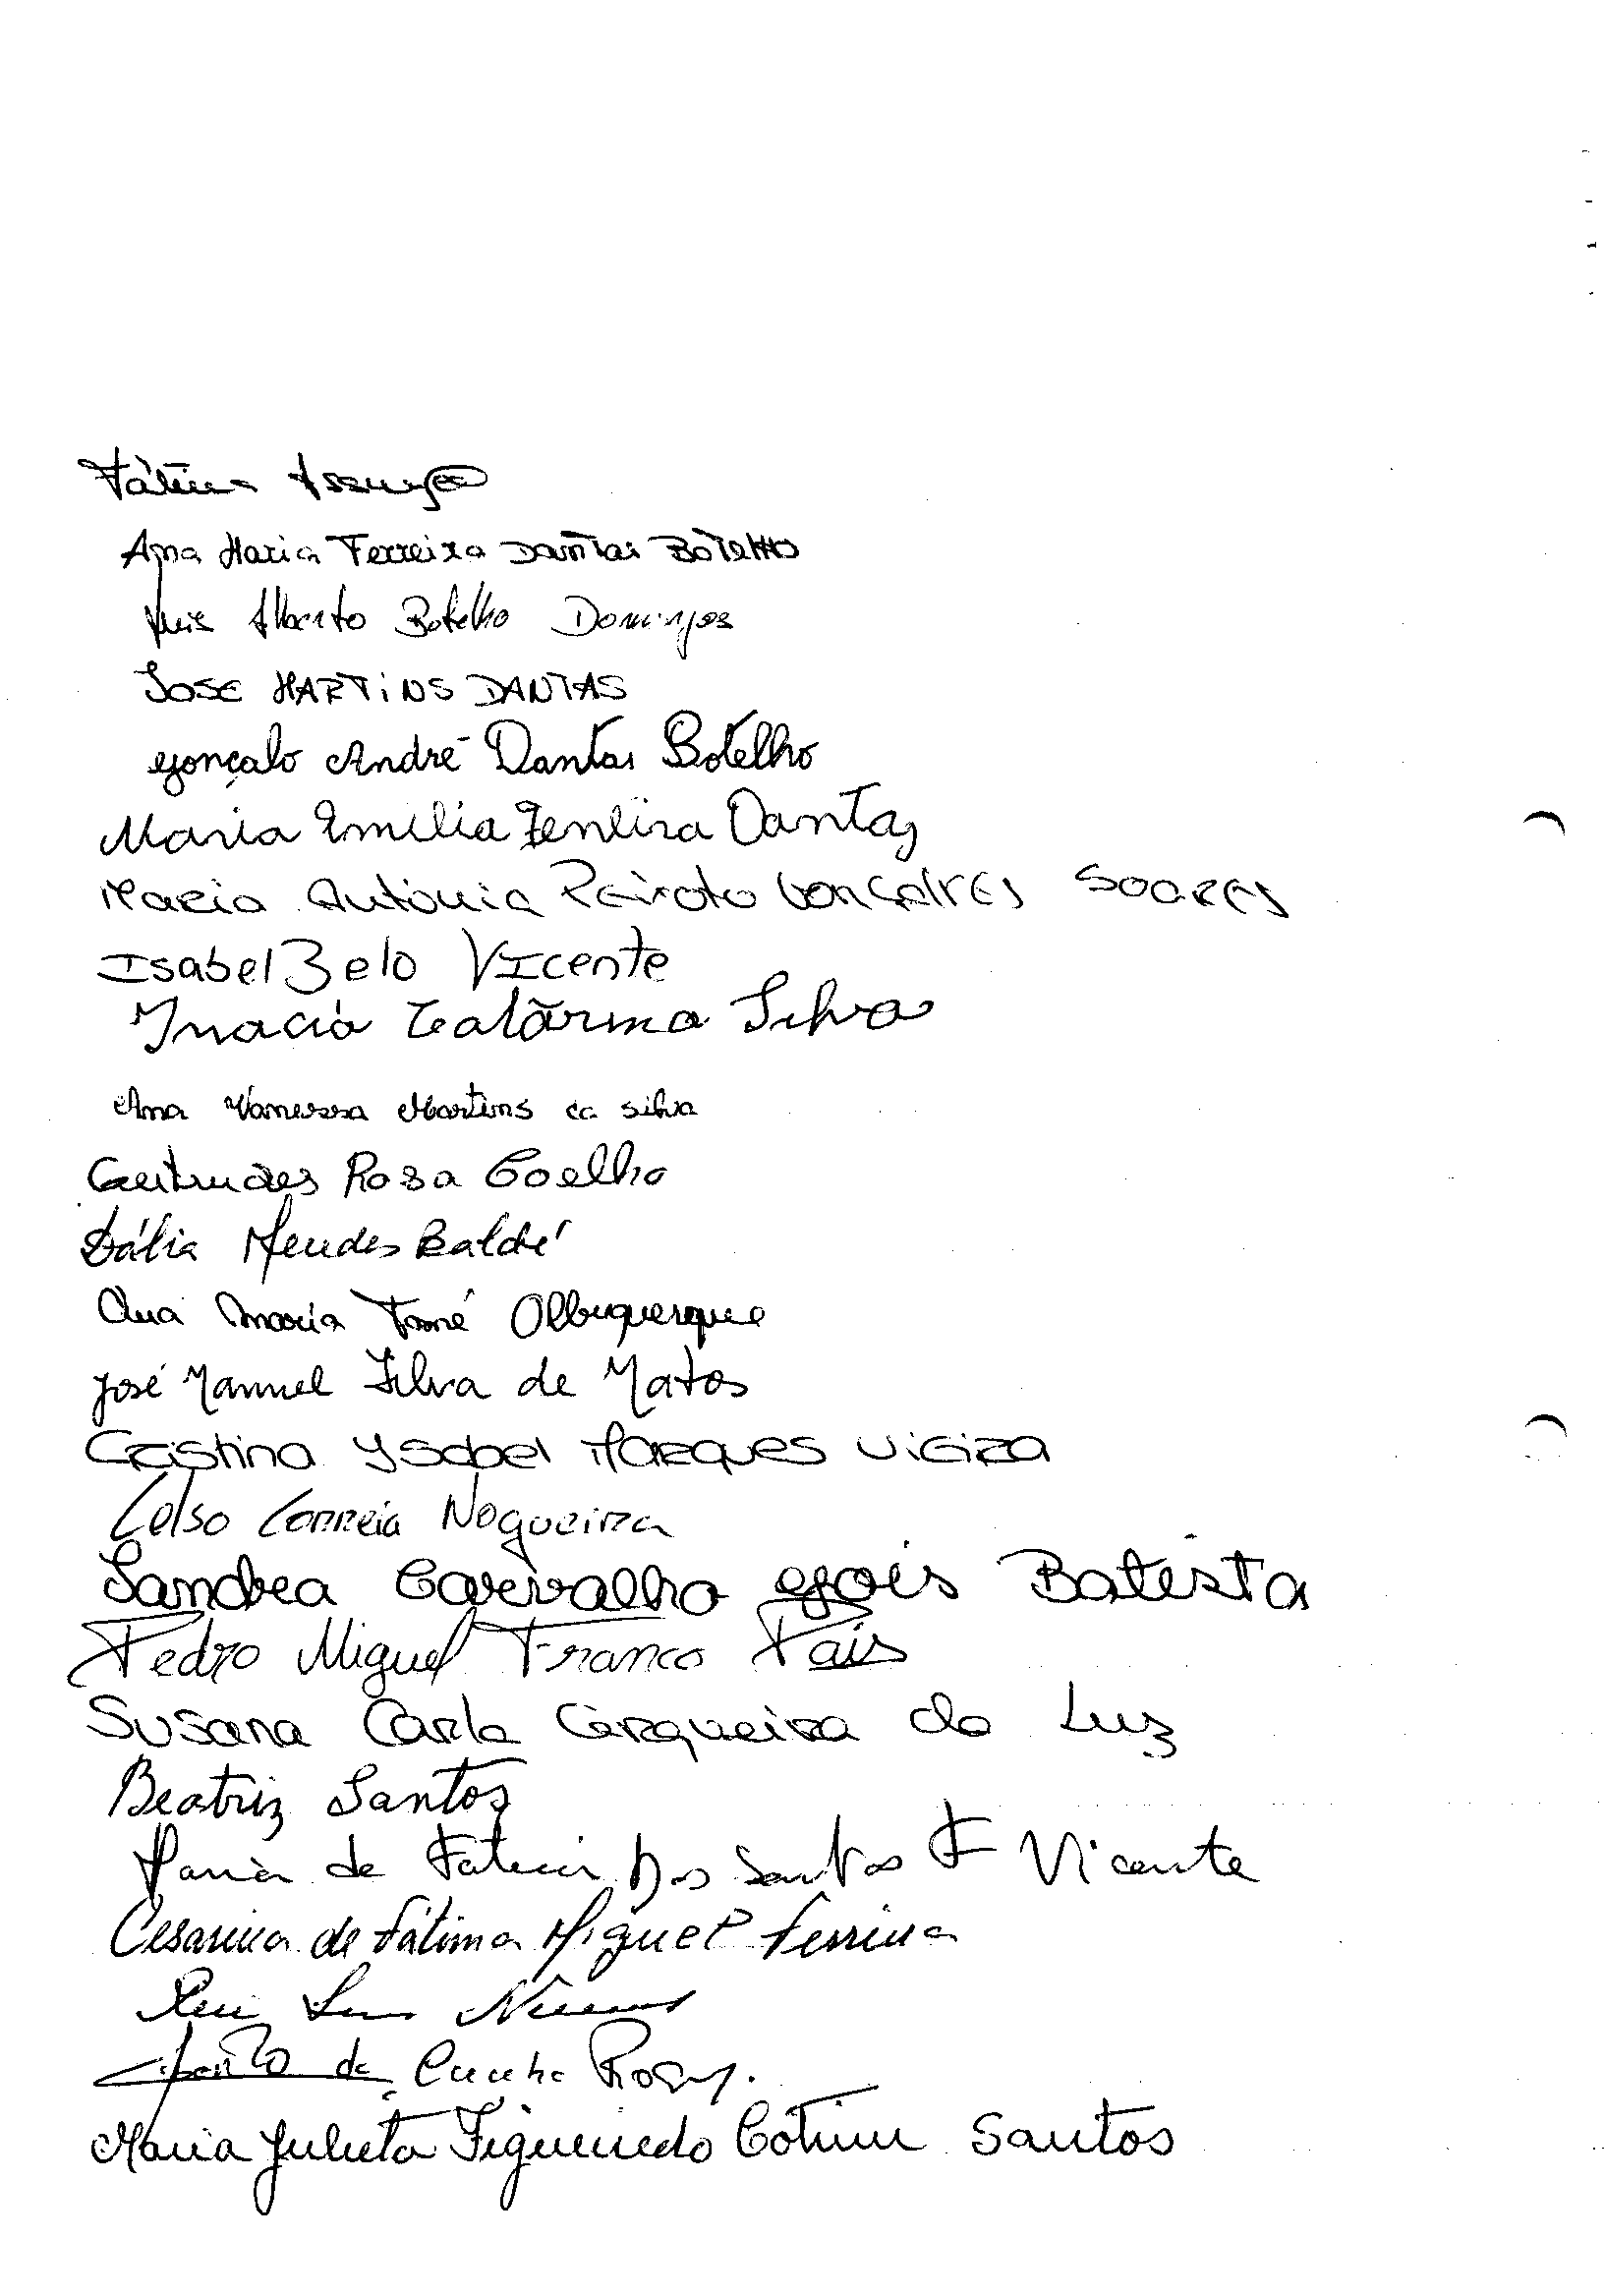 Fátima Assunção
Ana Maria Ferreira Dantas Botelho
Luis Alberto Botelho Domingos
JOSE MARTINS DANTAS
Gonçalo André Dantas Botelho
Maria Emilia Ferreira Dantas
Maria Antónia Peixoto Gonçalves Soares
Isabel Belo Vicente
Inacia Catarina Silva
Ana Vanessa Martins da Silva
Gertrudes Rosa Coelho
Dália Mendes Baldé
Ana Maria Tomé Albuquerque
José Manuel Silva de Matos
Cristina Ysabel Marques Vigira
Celso Correia Nogueira
Sandra Carvalho Gois Batista
Pedro Miguel Franco Pais
Susana Carla Cerqueira da Luz
Beatriz Santos
Maria de Fatima Dos Santos F Vicente
Cesarina de Fátima Miguel Ferreira
Rui Nunes
da Cunha
Maria Julieta Figueiredo Cotrim Santos